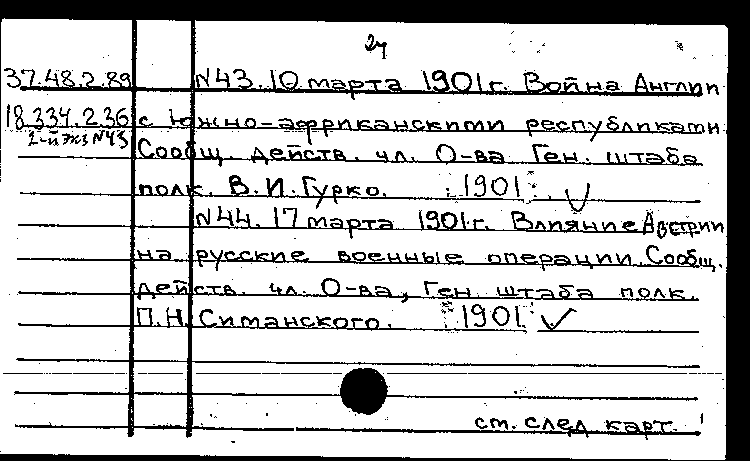 24
37.48.2.89 N43. 10 марта 1901г. Война Англии
18.334.2.36 с Южно-африканскими республиками.
2-й экз N43
Сообщ. действ. чл. О-ва Ген. штаба
полк. В.И.Гурко. 1901
N44. 17 марта 1901г. Влияние Австрии
на русские военные операции. Сообщ.
действ. чл. О-ва, Ген. штаба полк.
П.Н. Симанского. 1901
см. след карт.